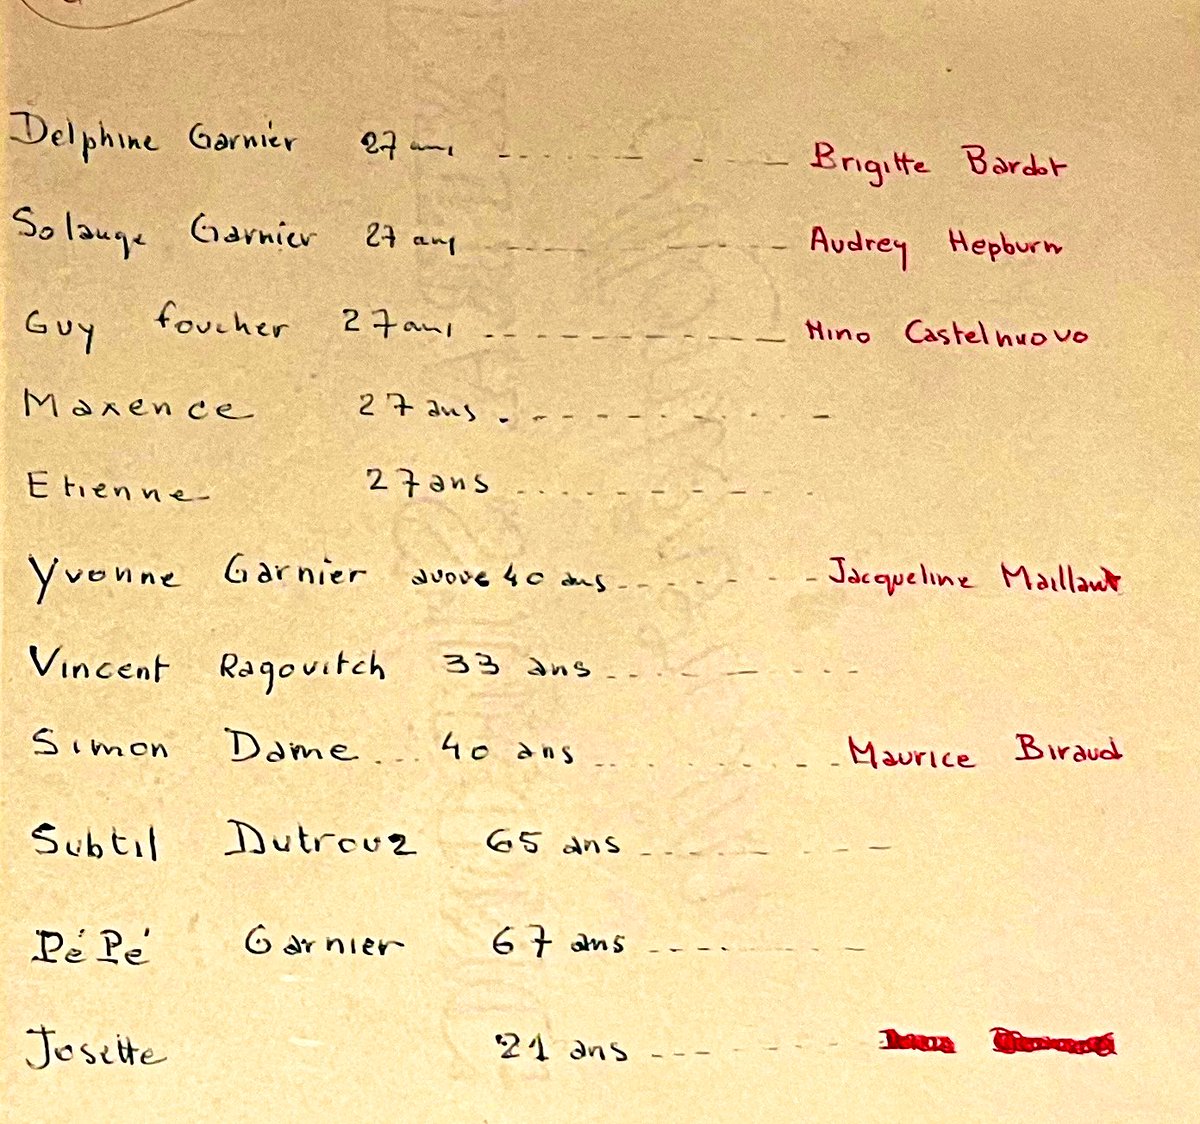 Delphine Garnier 27 ans ---------- Brigitte Bardot
Solange Garnier 27 ans ---------- Audrey Hepburn
Guy foucher 27 ans ---------- Nino Castelnuovo
Maxence 27 ans ----------
Etienne 27 ans ----------
Yvonne Garnier avoue 40 ans ------- Jacqueline Maillant
Vincent Ragovitch 33 ans -------
Simon Dame ... 40 ans --------- Maurice Biraud
Subtil Dutrouz 65 ans -------
PéPé Garnier 67 ans -------
Josette 21 ans -------